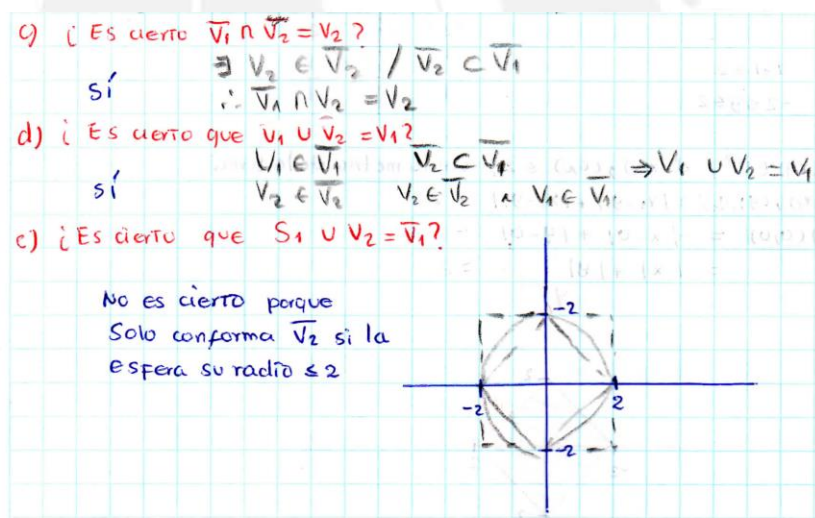 c) ¿ Es cierto V̅₁ ∩ V̅₂ = V₂ ?
∃ V₂ ∈ V̅₂ / V̅₂ ⊂ V̅₁
sí ∴ V̅₁ ∩ V₂ = V₂
d) ¿ Es cierto que V̅₁ ∪ V̅₂ = V₁?
V₁ ∈ V̅₁ V̅₂ ⊂ V̅₁ ⇒ V₁ ∪ V₂ = V₁
sí V₂ ∈ V̅₂ V₂ ∈ V̅₂ ∧ V₁ ∈ V̅₁
e) ¿ Es cierto que S₁ ∪ V₂ = V̅₁?
No es cierto porque
Solo conforma V̅₂ si la
esfera su radio ≤ 2
-2
-2 2
-2